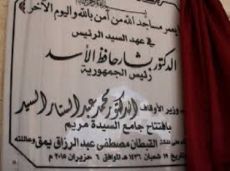 يعمر مساجد الله من آمن بالله واليوم الآخر
في عهد السيد الرئيس
الدكتور بشار حافظ الأسد
رئيس الجمهورية
وزير الأوقاف الدكتور محمد عبد الستار السيد
بافتتاح جامع السيدة مريم
القبطان مصطفى عبد الرزاق يمق وعائلته
بتاريخ ١٩ شعبان ١٤٣٦ الموافق ٦ حزيران ٢٠١٥ م